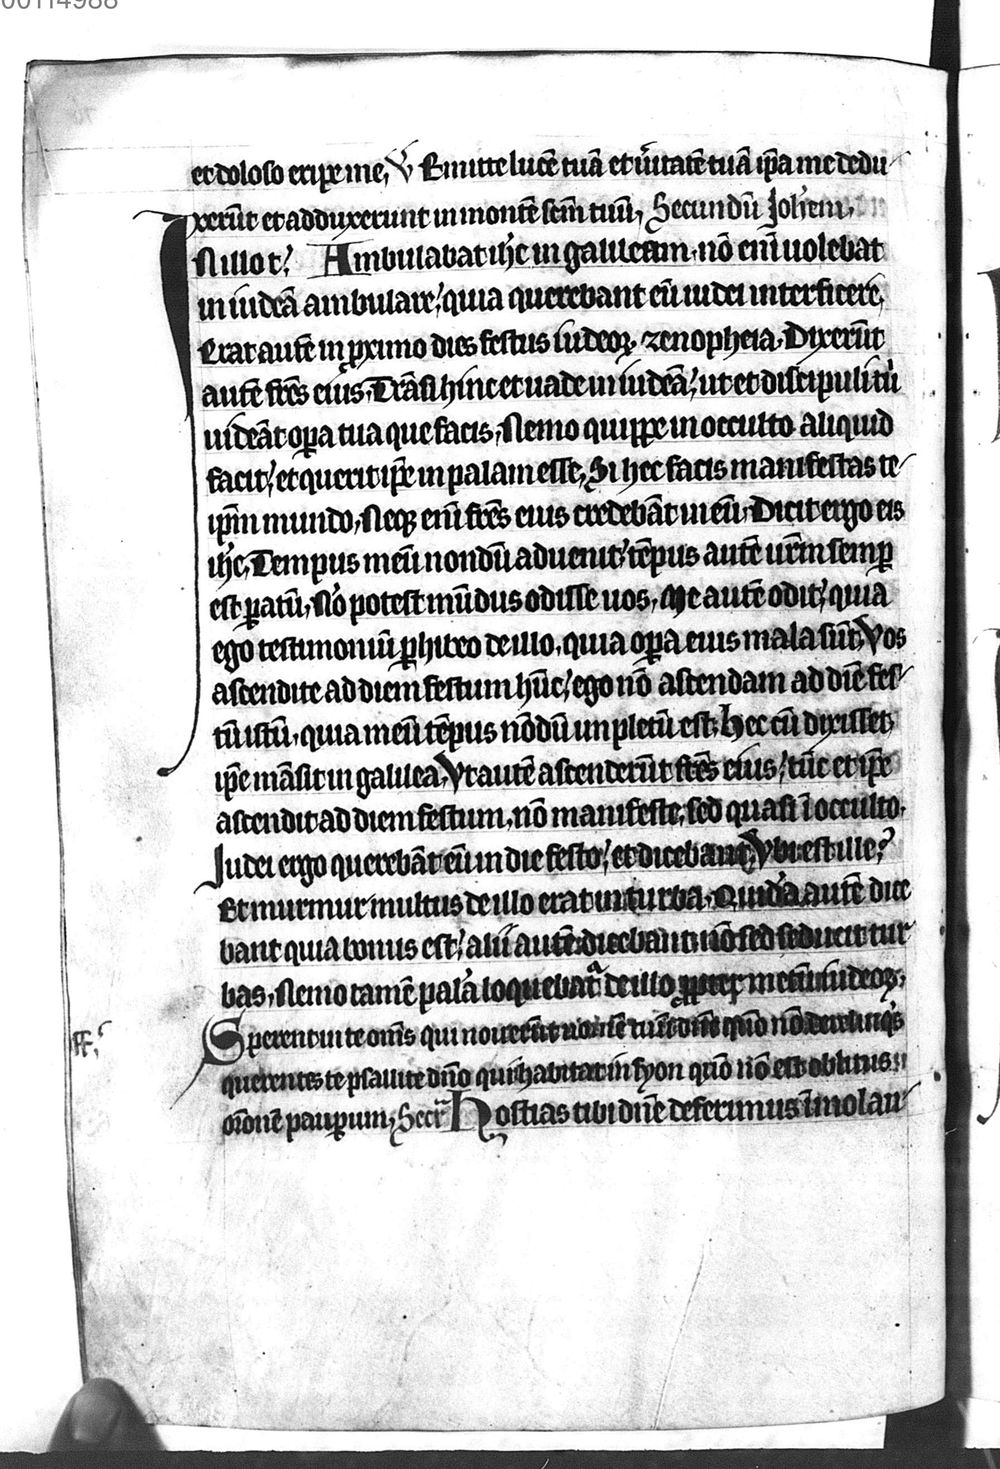 00114988
et doloso eripe me, V Emitte lucē tuā et ũitatē tuā ip̄a me dedu
xerūt et adduxerunt in montē sc̄m tuū, Secundū Joh'em,
In illo t; Ambulabat ih̄c in galileam, nō enī uolebat
in iudeā ambulare, quia querebant eū iudei interficere,
Erat autē in p̱ximo dies festus iudeoꝝ, zenopheia, Dixerūt
autē fr̄es eius, Trāsi hinc et uade in iudeā, ut et discipuli tui
uideāt oꝑa tua que facis, Nemo quippe in occulto aliquid
facit, et querit ip̄e in palam esse, Si hec facis manifestas te
ip̄m mundo, Neqꝫ enī fr̄es eius credebāt in eū, Dicit ergo eis
ih̄c, Tempus meū nondū aduenit, tēpus autē ur̄m semꝑ
est ꝑatū, Nō potest mūdus odisse uos, Me autē odit, quia
ego testimoniū ꝑhibeo de illo, quia oꝑa eius mala sūt, Vos
ascendite ad diem festum hūc, ego nō ascendam ad diē fes
tū istū, quia meū tēpus nōdū impletū est, Hec cū dixisset
ip̄e māsit in galilea, Ut autē ascenderūt fr̄es eius, tūc et ip̄e
ascendit ad diem festum, nō manifeste, sed quasi ī occulto,
Judei ergo querebāt eū in die festo, et dicebant, Ubi est ille?
Et murmur multus de illo erat in turba, Quidā autē dice
bant quia bonus est, alii autē dicebant nō sed seducit tur
bas, Nemo tamē palā loquebat' de illo ꝓpter metū iudeoꝝ,
Sperent in te om̄s qui nouerūt nomē tuū dn̄e qm̄ nō derelinq's
querentes te psallite dn̄o qui habitat in syon qm̄ nō est oblitus
or̄onē pauꝑum, Secr' Hostias tibi dn̄e deferimus īmolan